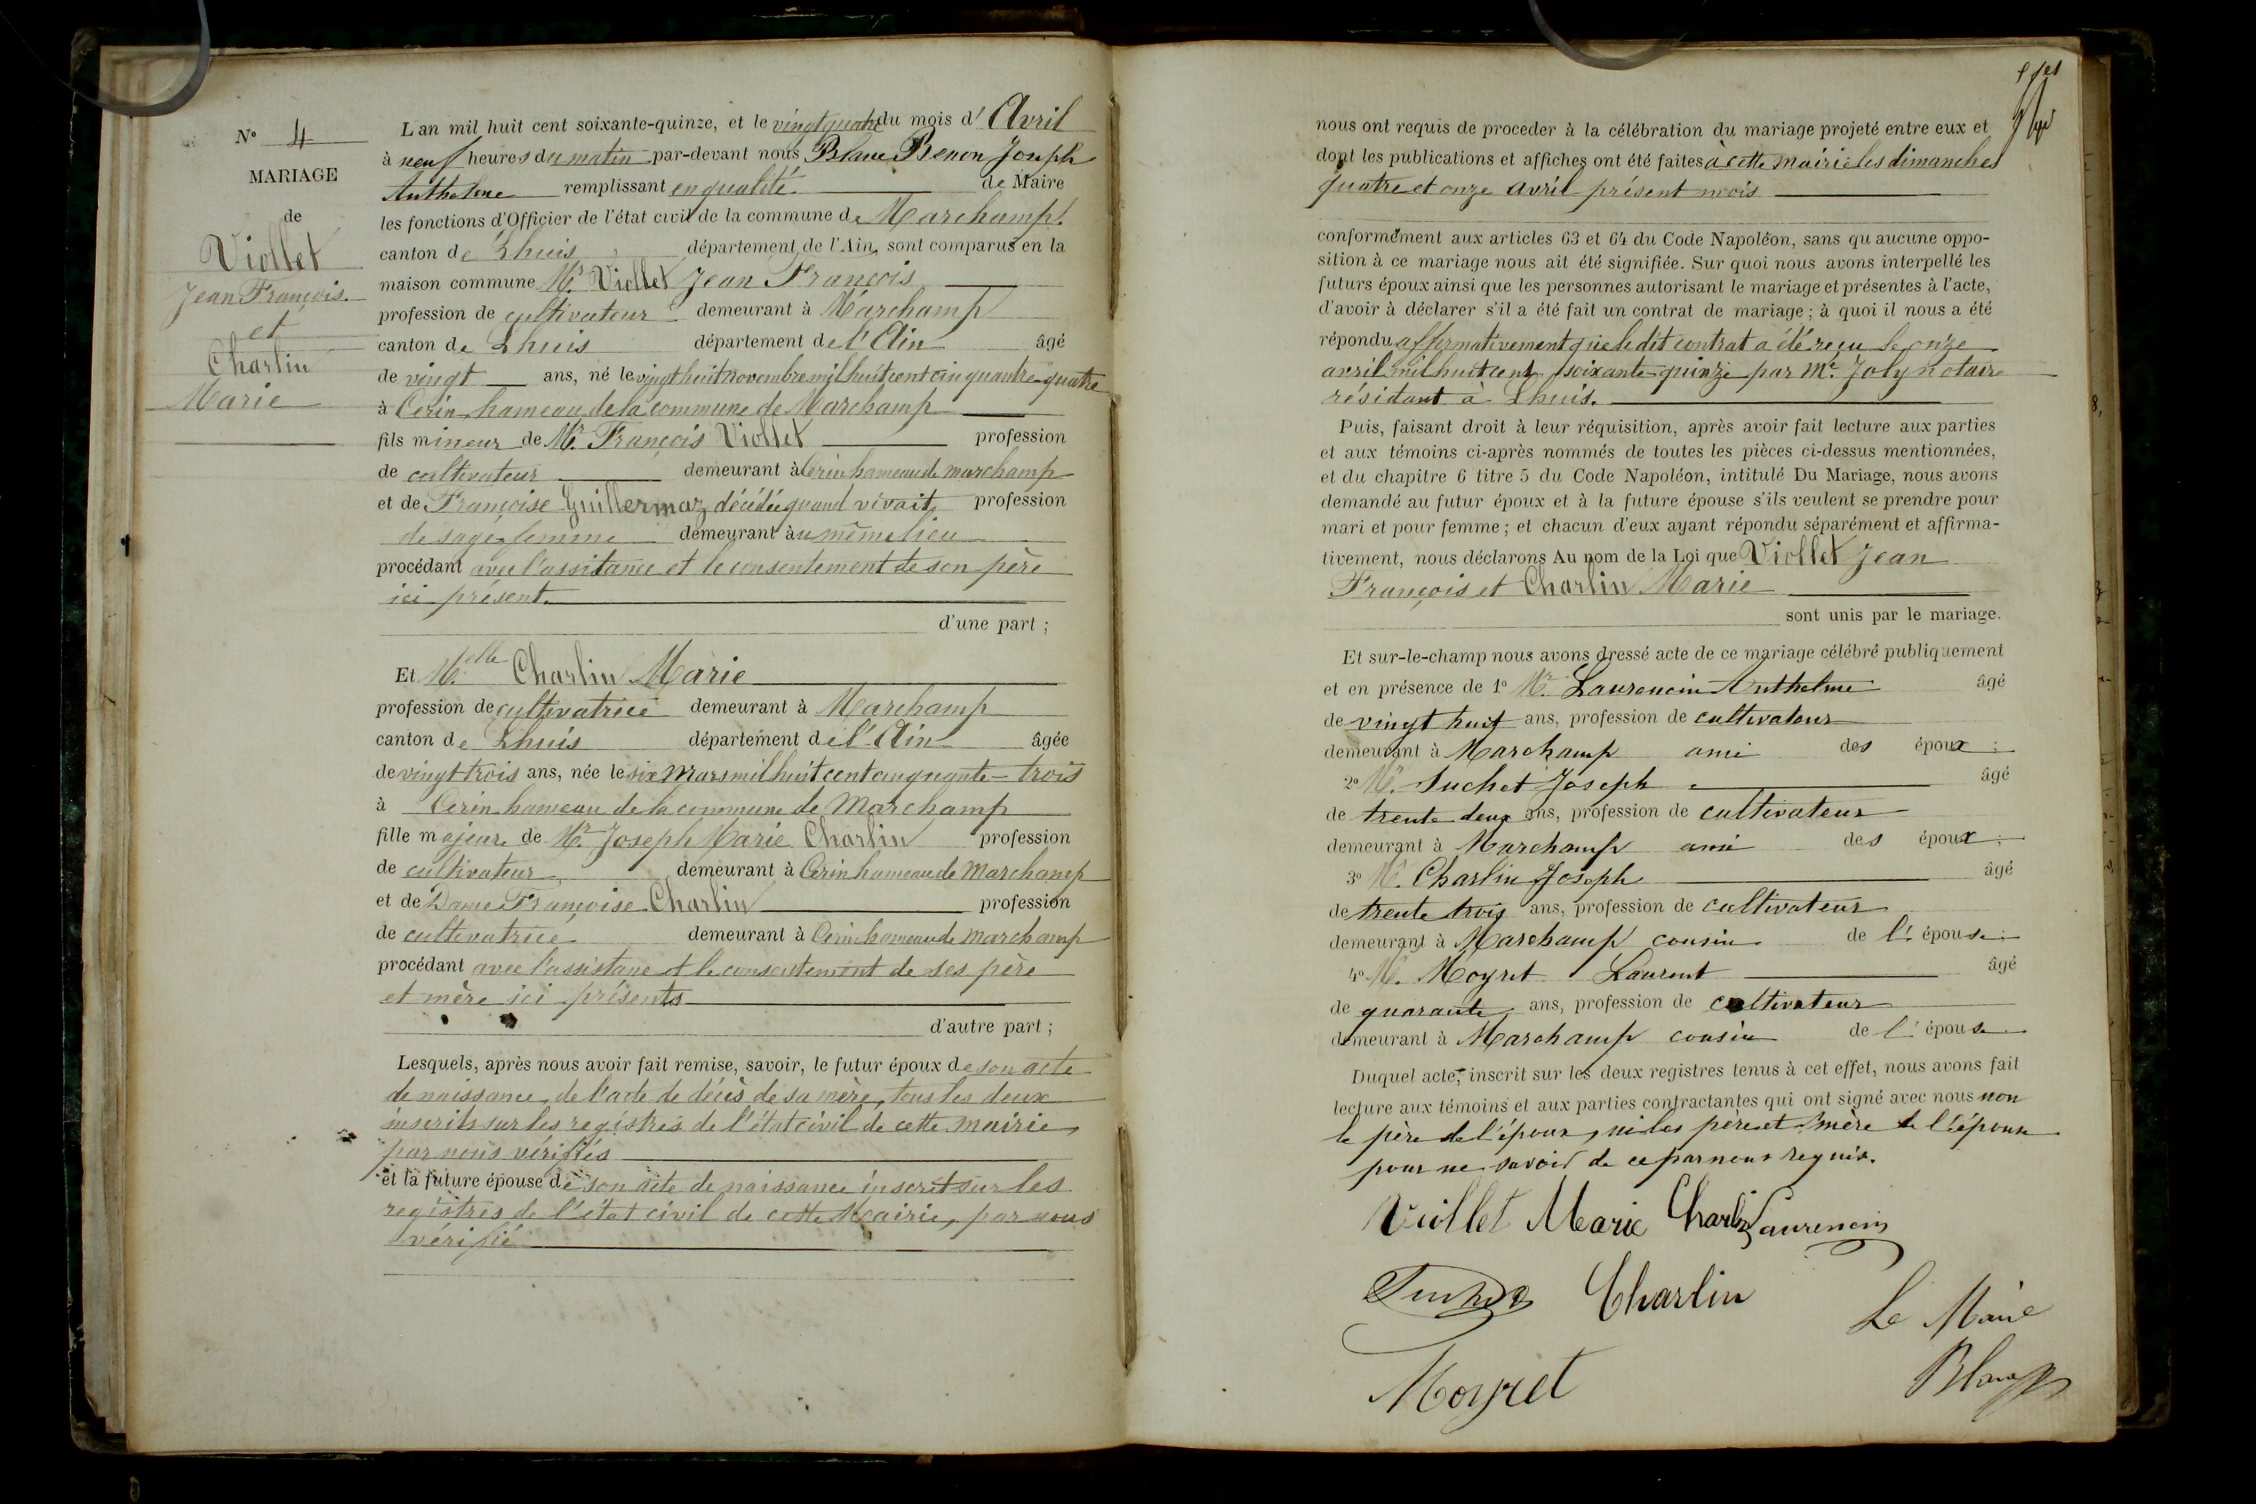 N° 4
MARIAGE
de
Viollet
Jean François.
et
Charlin
Marie
L'an mil huit cent soixante-quinze, et le vingt quatre du mois d' Avril
à neuf heures du matin par-devant nous Blanc Benon Joseph
Anthelme remplissant en qualité de Maire
les fonctions d'Officier de l'état civil de la commune de Marchamp.
canton de Lhuis département de l'Ain, sont comparus en la
maison commune Mr. Viollet Jean François
profession de cultivateur demeurant à Marchamp
canton de Lhuis département de l'Ain âgé
de vingt ans, né le vingt huit novembre mil huit cent cinquante-quatre
à Cerin hameau de la commune de Marchamp
fils mineur de Mr. François Viollet profession
de cultivateur demeurant à Cerin hameau de marchamp
et de Françoise Guillermaz décédée quand vivait, profession
de sage-femme demeurant au même lieu
procédant avec l'assistance et le consentement de son père
ici présent.
d'une part ;
Et Melle Charlin Marie
profession de cultivatrice demeurant à Marchamp
canton de Lhuis département de l'Ain âgée
de vingt trois ans, née le six Mars mil huit cent cinquante-trois
à Cerin hameau de la commune de Marchamp
fille majeure de Mr. Joseph Marie Charlin profession
de cultivateur demeurant à Cerin hameau de Marchamp
et de Dame Françoise Charlin profession
de cultivatrice demeurant à Cerin hameau de Marchamp
procédant avec l'assistance et le consentement de ses père
et mère ici présents
d'autre part ;
Lesquels, après nous avoir fait remise, savoir, le futur époux de son acte
de naissance, de l'acte de décès de sa mère, tous les deux
inscrits sur les registres de l'état civil de cette mairie,
par nous vérifiés
et la future épouse de son acte de naissance inscrit sur les
registres de l'état civil de cette Mairie, par nous
vérifié
nous ont requis de procéder à la célébration du mariage projeté entre eux et
dont les publications et affiches ont été faites à cette mairie les dimanches
quatre et onze avril présent mois
conformément aux articles 63 et 64 du Code Napoléon, sans qu'aucune oppo-
sition à ce mariage nous ait été signifiée. Sur quoi nous avons interpellé les
futurs époux ainsi que les personnes autorisant le mariage et présentes à l'acte,
d'avoir à déclarer s'il a été fait un contrat de mariage ; à quoi il nous a été
répondu affirmativement que le dit contrat a été reçu le onze
avril mil huit cent soixante-quinze par Me. Joly notaire
résidant à Lhuis.
Puis, faisant droit à leur réquisition, après avoir fait lecture aux parties
et aux témoins ci-après nommés de toutes les pièces ci-dessus mentionnées,
et du chapitre 6 titre 5 du Code Napoléon, intitulé Du Mariage, nous avons
demandé au futur époux et à la future épouse s'ils veulent se prendre pour
mari et pour femme ; et chacun d'eux ayant répondu séparément et affirma-
tivement, nous déclarons Au nom de la Loi que Viollet Jean
François et Charlin Marie
sont unis par le mariage.
Et sur-le-champ nous avons dressé acte de ce mariage célébré publiquement
et en présence de 1° Mr. Laurencin Anthelme âgé
de vingt huit ans, profession de cultivateur
demeurant à Marchamp ami des époux ;
2° Mr. Suchet Joseph âgé
de trente deux ans, profession de cultivateur
demeurant à Marchamp ami des époux ;
3° Mr. Charlin Joseph âgé
de trente trois ans, profession de cultivateur
demeurant à Marchamp cousin de l'épouse ;
4° Mr. Moyret Laurent âgé
de quarante ans, profession de cultivateur
demeurant à Marchamp cousin de l'épouse
Duquel acte, inscrit sur les deux registres tenus à cet effet, nous avons fait
lecture aux témoins et aux parties contractantes qui ont signé avec nous non
le père de l'époux, ni les père et mère de l'épouse
pour ne savoir de ce par nous requis.
Viollet Marie Charlin Laurencin
Suchet Charlin
Le Maire
Moyret
Blanc